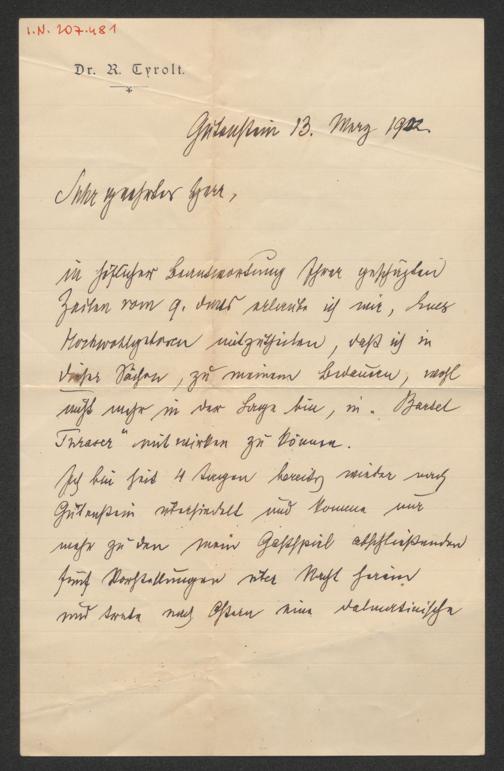 I.N. 207.481
Dr. R. Tyrolt.
Gutenstein 13. März 19
Sehr geehrter Herr,
in höflicher Beantwortung Ihrer geschäzten
Zeilen vom 9. dmts erlaube ich mir, Euer
Hochwohlgeborn mitzutheilen, daß ich in
dieser , zu meinem Bedauern, wohl
nicht mehr in der Lage bin, in „Bartel
Turaser" mitwirken zu können.
Ich bin seit 4 Tagen bereits wieder nach
Gutenstein übersiedelt und komme nur
mehr zu den mein Gastspiel abschließenden
fünf Vorstellungen über Nacht herein
und trete nach Ostern eine dalmatinische